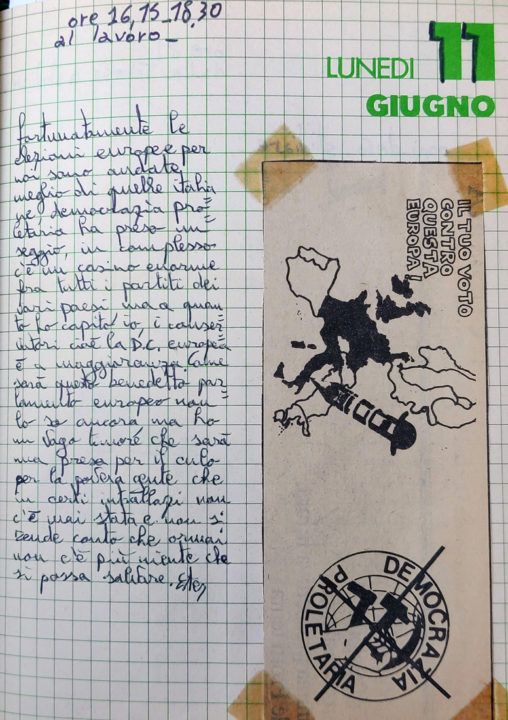 ore 16,15_18,30
al lavoro_
LUNEDI 11
GIUGNO
fortunatamente le
elezioni europee per
noi sono andate
meglio di quelle italia
ne, democrazia pro=
letaria ha preso un
seggio, in complesso
c'è un casino enorme
fra tutti i partiti dei
vari paesi ma a quan
to ho capito io, i conser=
vatori cioè la D.C. europea
è in maggioranza. Come
sarà questo benedetto par
lamento europeo non
lo so ancora ma ho
un vago timore che sarà
una presa per il culo
per la povera gente che
in certi intrallazzi non
c'è mai stata e non si
rende conto che ormai
non c'è più niente che
si possa salvare.
IL TUO VOTO
CONTRO
QUESTA
EUROPA!
DEMOCRAZIA
PROLETARIA